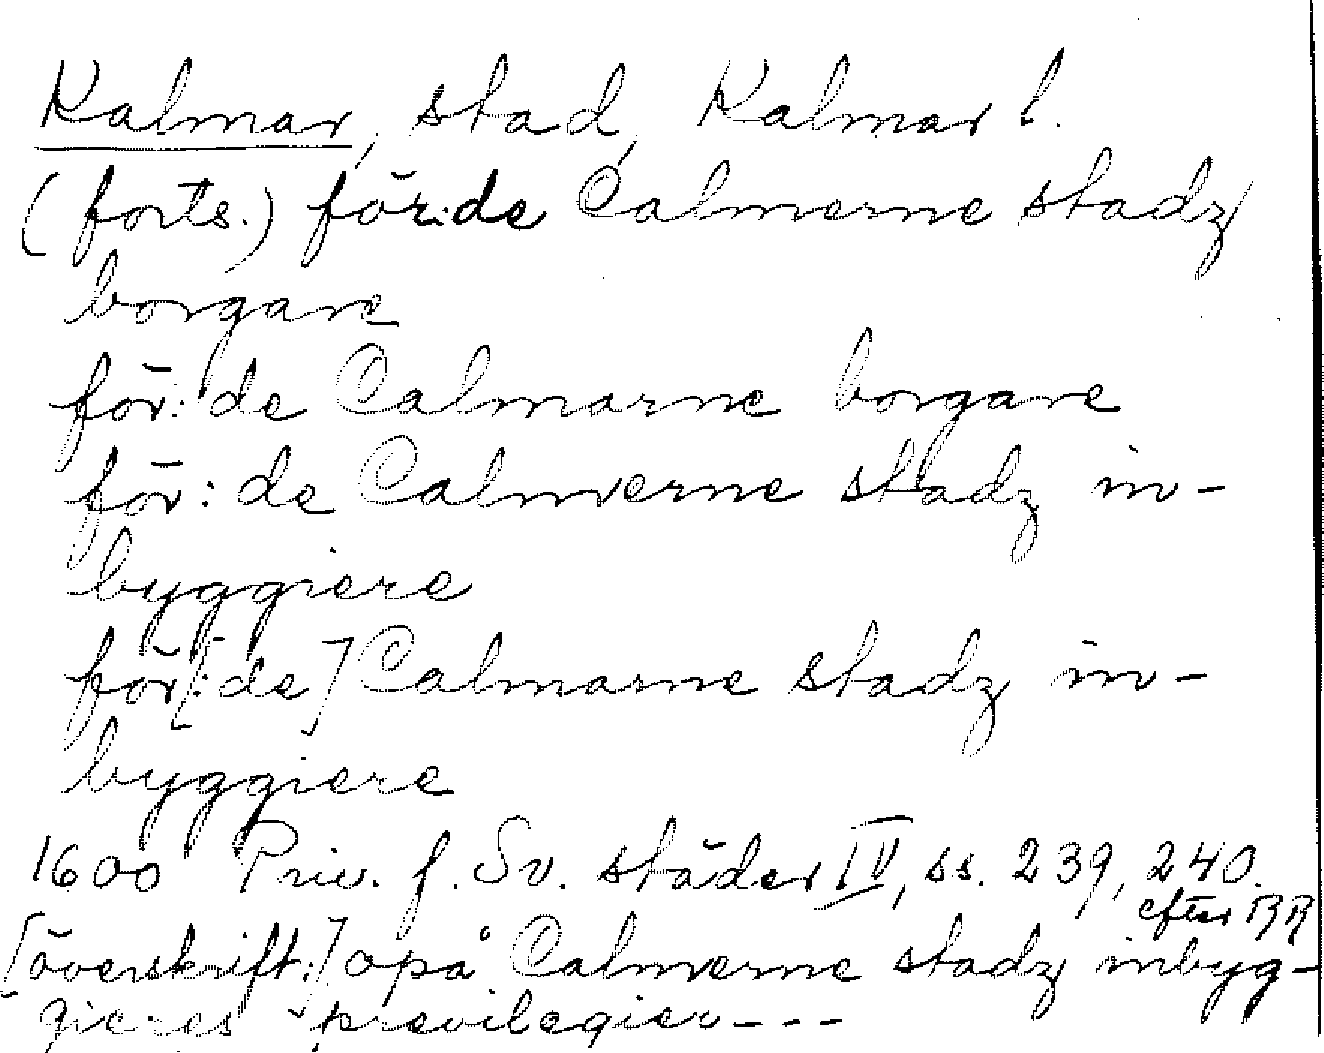 Kalmar, stad, Kalmar l.
(forts.) för:de Calmerne stadz
borgare
för:de Calmarne borgare
för:de Calmerne stadz in-
byggiere
för[:de] Calmarne stadz in-
byggiere
1600 Priv. f. Sv. städer IV, ss. 239, 240.
efter RR
[överskrift:] opå Calmerne stadz inbyg-
gieres previlegier---